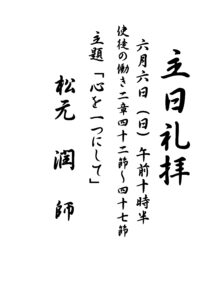 主日礼拝
六月六日（日）午前十時半
使徒の働き二章四十二節～四十七節
主題「心を一つにして」
松元 潤 師